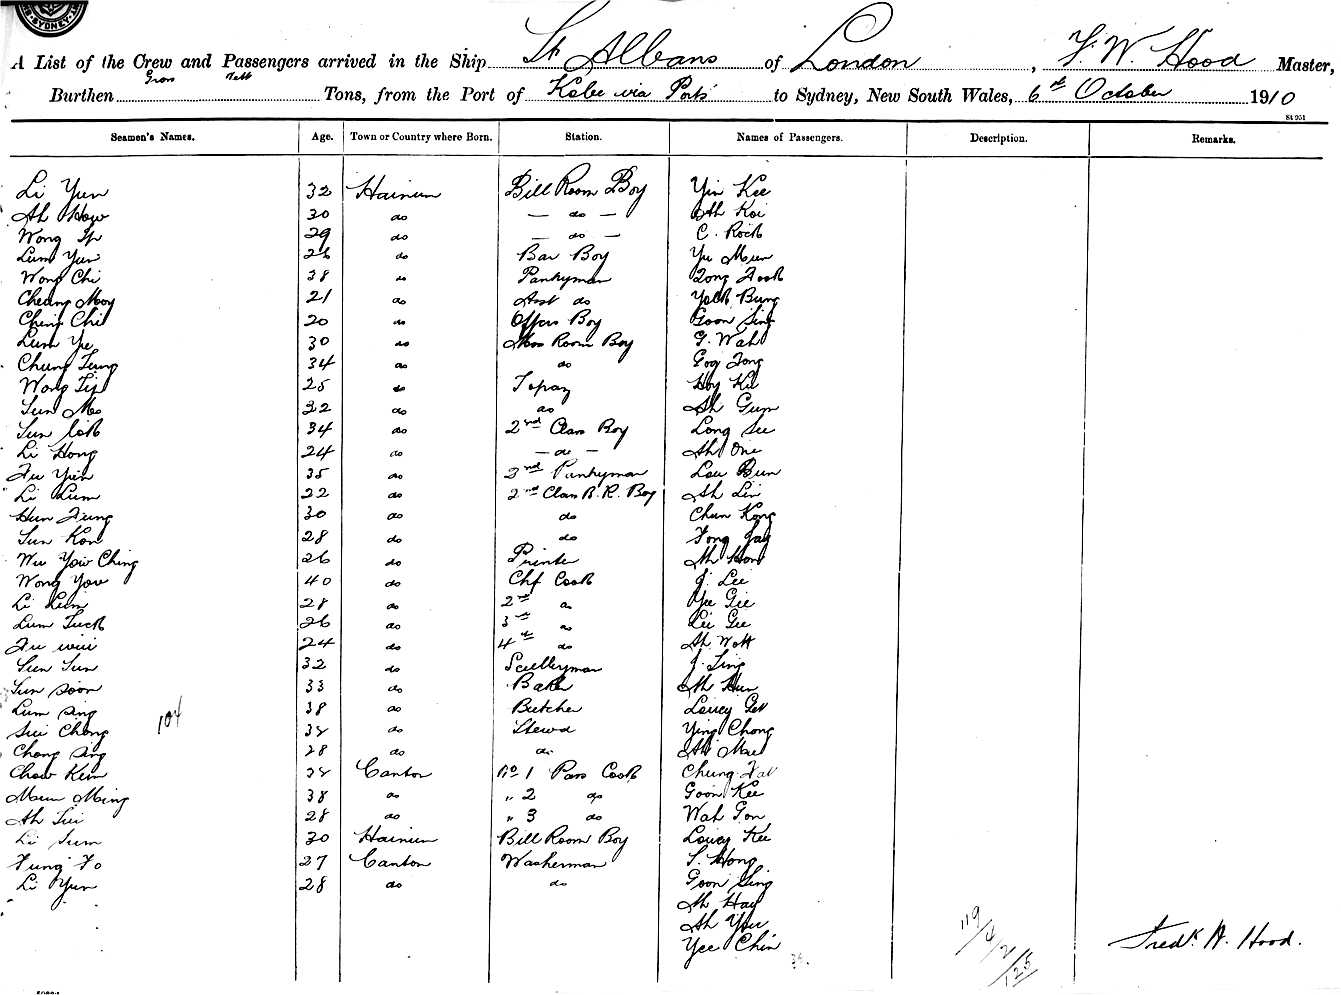 SYDNEY
A List of the Crew and Passengers arrived in the Ship St Albans of London, F. W. Hood Master,
Burthen Gross Nett Tons, from the Port of Kobe via Ports to Sydney, New South Wales, 6th October 1910
St 951
Seamen's Names. Age. Town or Country where Born. Station. Names of Passengers. Description. Remarks.
Li Yun 32 Hainun Bill Room Boy Yin Kee
Ah How 30 do — do — Ah Koi
Wong 29 do — do — C. Rock
Lum Yun 26 do Bar Boy Yu Mun
Wong Chi 38 do Pantryman Fook
Cheang Moy 21 do Asst do Yock Bung
Ching Chi 20 do Offers Boy Goon Sing
Lum Yee 30 do Room Boy G. Wah
Chung Tung 34 do do Goy Tong
Wong 25 do Topaz Hoy
Sun Mo 32 do do Ah Gum
Sun 34 do 2nd Class Boy Long See
Li Hong 24 do — do — Ah One
Fu Yien 35 do 2nd Pantryman Lou Bun
Li Lum 22 do 2nd Class B. R. Boy Ah Lin
Hun Fung 30 do do Chun Kong
Sun Kon 28 do do Fong
Wu Yow Ching 26 do Printer Ah Hon
Wong You 40 do Chf Cook J. Lee
Li Lum 28 do 2nd do Yee Gee
Lum Tuck 26 do 3rd do Lee Gee
Fu 24 do 4th do Ah Mott
Sun Sun 32 do Sculleryman J. Sing
Sun Soon 33 do Baker Ah Hun
Lum Sing 38 do Butcher Loucy
104
Sui Chong 38 do Stewd Ying Chong
Chong Sing 28 do do Ah Moe
Chow Kim 38 Canton No 1 Pass Cook Chung Fat
Mun Ming 38 do " 2 do Goon Kee
Ah Sui 28 do " 3 do Wah Gon
Li Sum 30 Hainun Bill Room Boy Loucy Kee
Fung Fo 27 Canton Washerman S. Hong
Li Yun 28 do do Goon Sing
Ah Hay
Ah You
Yee Chin
119/4/2/125
Fredk W. Hood.